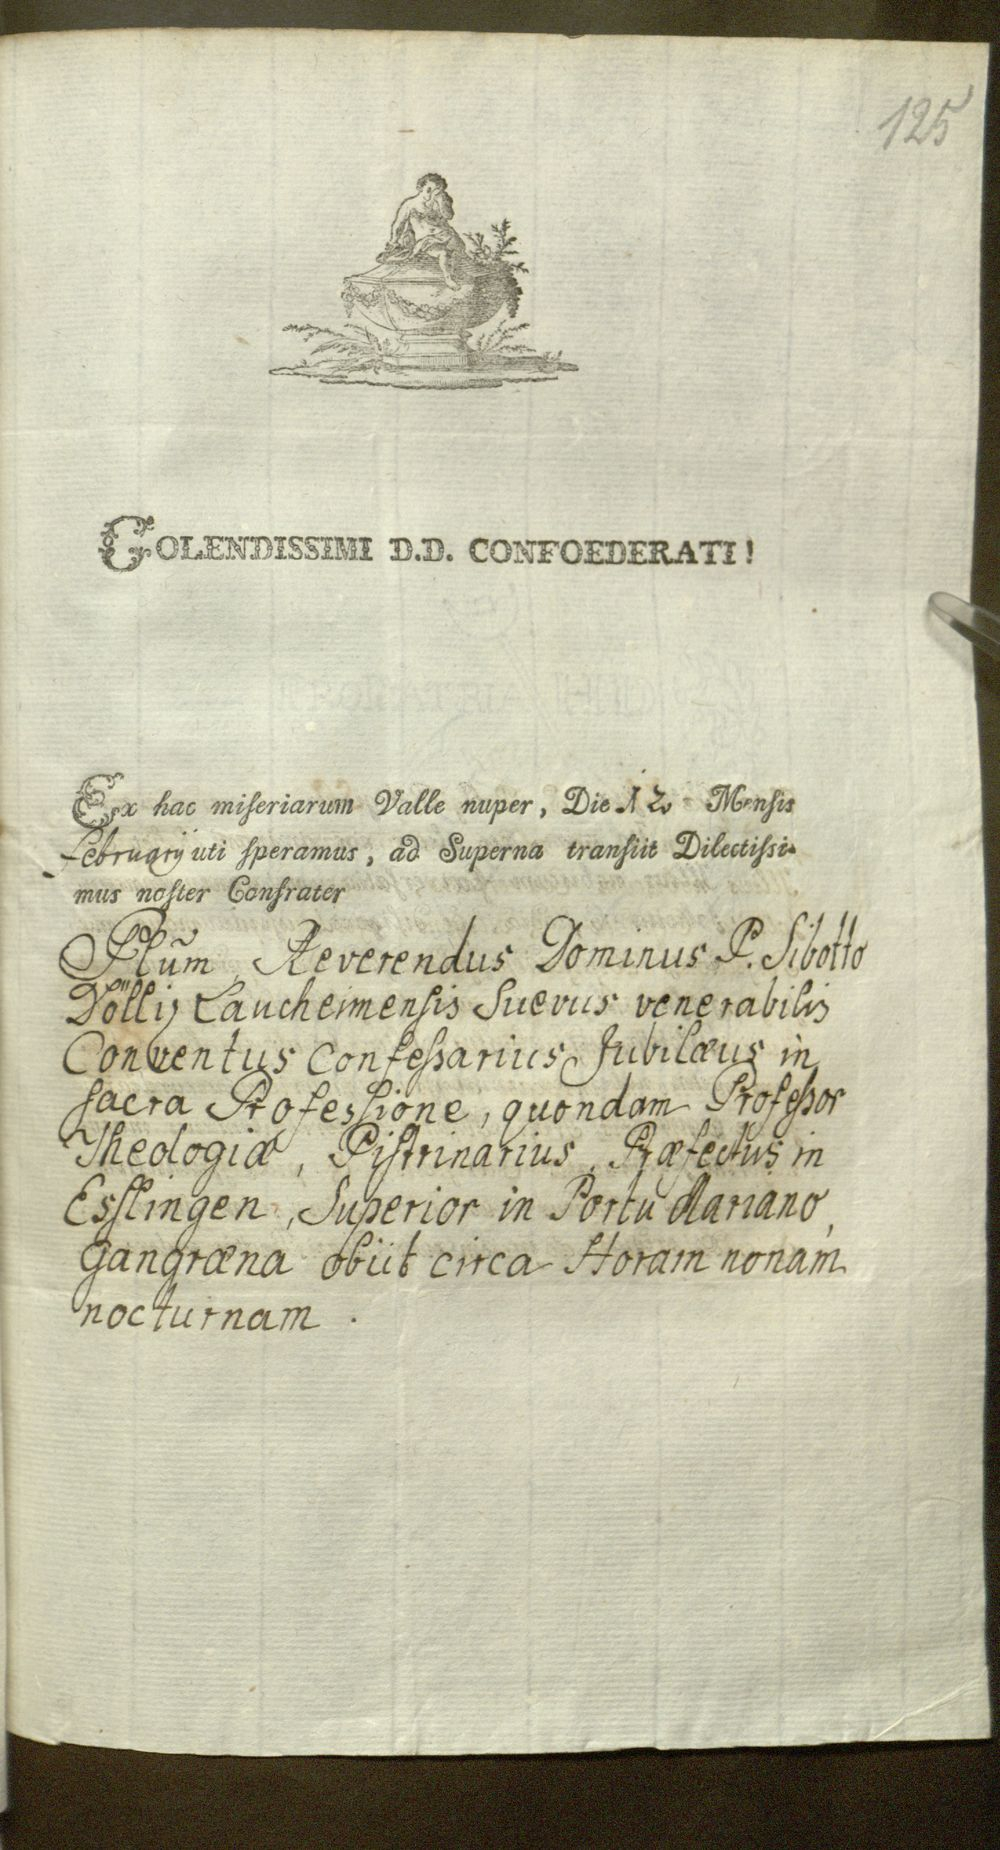 125
COLENDISSIMI D.D. CONFOEDERATI!
Ex hac miseriarum Valle nuper, Die 12 Mensis
februarÿ uti speramus, ad Superna transiit Dilectissi-
mus noster Confrater
Plūm Reverendus Dominus P. Sibotto
Döllis Laucheimensis Suevus venerabilis
Conventus Confessarius Jubilæus in
sacra Professione, quondam Professor
Theologiæ, Pistrinarius, Præfectus in
Esslingen, Superior in Portu Mariano,
Gangræna obiit circa Horam nonam
nocturnam.